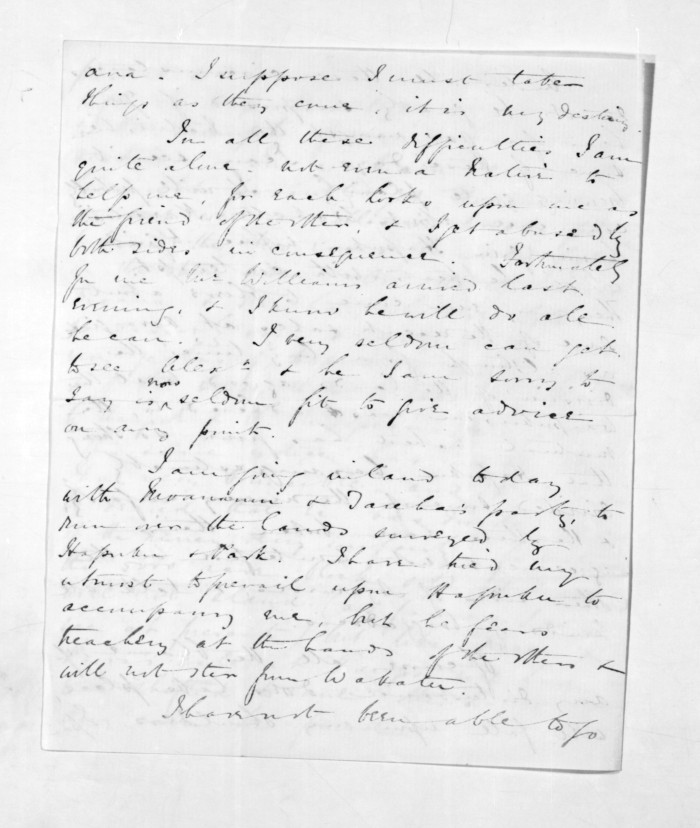 ana. I suppose I must take
things as they come, it is my destiny.
In all these difficulties I am
quite alone. not even a Native to
help me, for each looks upon me as
the friend of the other, & I get abused by
both sides in consequence. Fortunately
for me Mr Williams arrived last
evening, & I know he will do all
he can. I very seldom can get
to see Alexr & he I am sorry to
say is now seldom fit to give advice
on any point.
I am going inland today
with Moananui & Tareha's party, to
run over the lands surveyed by
Hapuku & Park. I have tried my
utmost to prevail upon Hapuku to
accompany me, but he fears
treachery at the hands of the others &
will not stir from
I have not been able to go